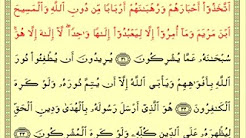 ٱتَّخَذُوٓا۟ أَحْبَارَهُمْ وَرُهْبَٰنَهُمْ أَرْبَابًا مِّن دُونِ ٱللَّهِ وَٱلْمَسِيحَ
ٱبْنَ مَرْيَمَ وَمَآ أُمِرُوٓا۟ إِلَّا لِيَعْبُدُوٓا۟ إِلَٰهًا وَٰحِدًا ۖ لَّآ إِلَٰهَ إِلَّا هُوَ ۚ
سُبْحَٰنَهُۥ عَمَّا يُشْرِكُونَ ٣١ يُرِيدُونَ أَن يُطْفِـُٔوا۟ نُورَ
ٱللَّهِ بِأَفْوَٰهِهِمْ وَيَأْبَى ٱللَّهُ إِلَّآ أَن يُتِمَّ نُورَهُۥ وَلَوْ كَرِهَ
ٱلْكَٰفِرُونَ ٣٢ هُوَ ٱلَّذِىٓ أَرْسَلَ رَسُولَهُۥ بِٱلْهُدَىٰ وَدِينِ ٱلْحَقِّ
لِيُظْهِرَهُۥ عَلَى ٱلدِّينِ كُلِّهِۦ وَلَوْ كَرِهَ ٱلْمُشْرِكُونَ ٣٣